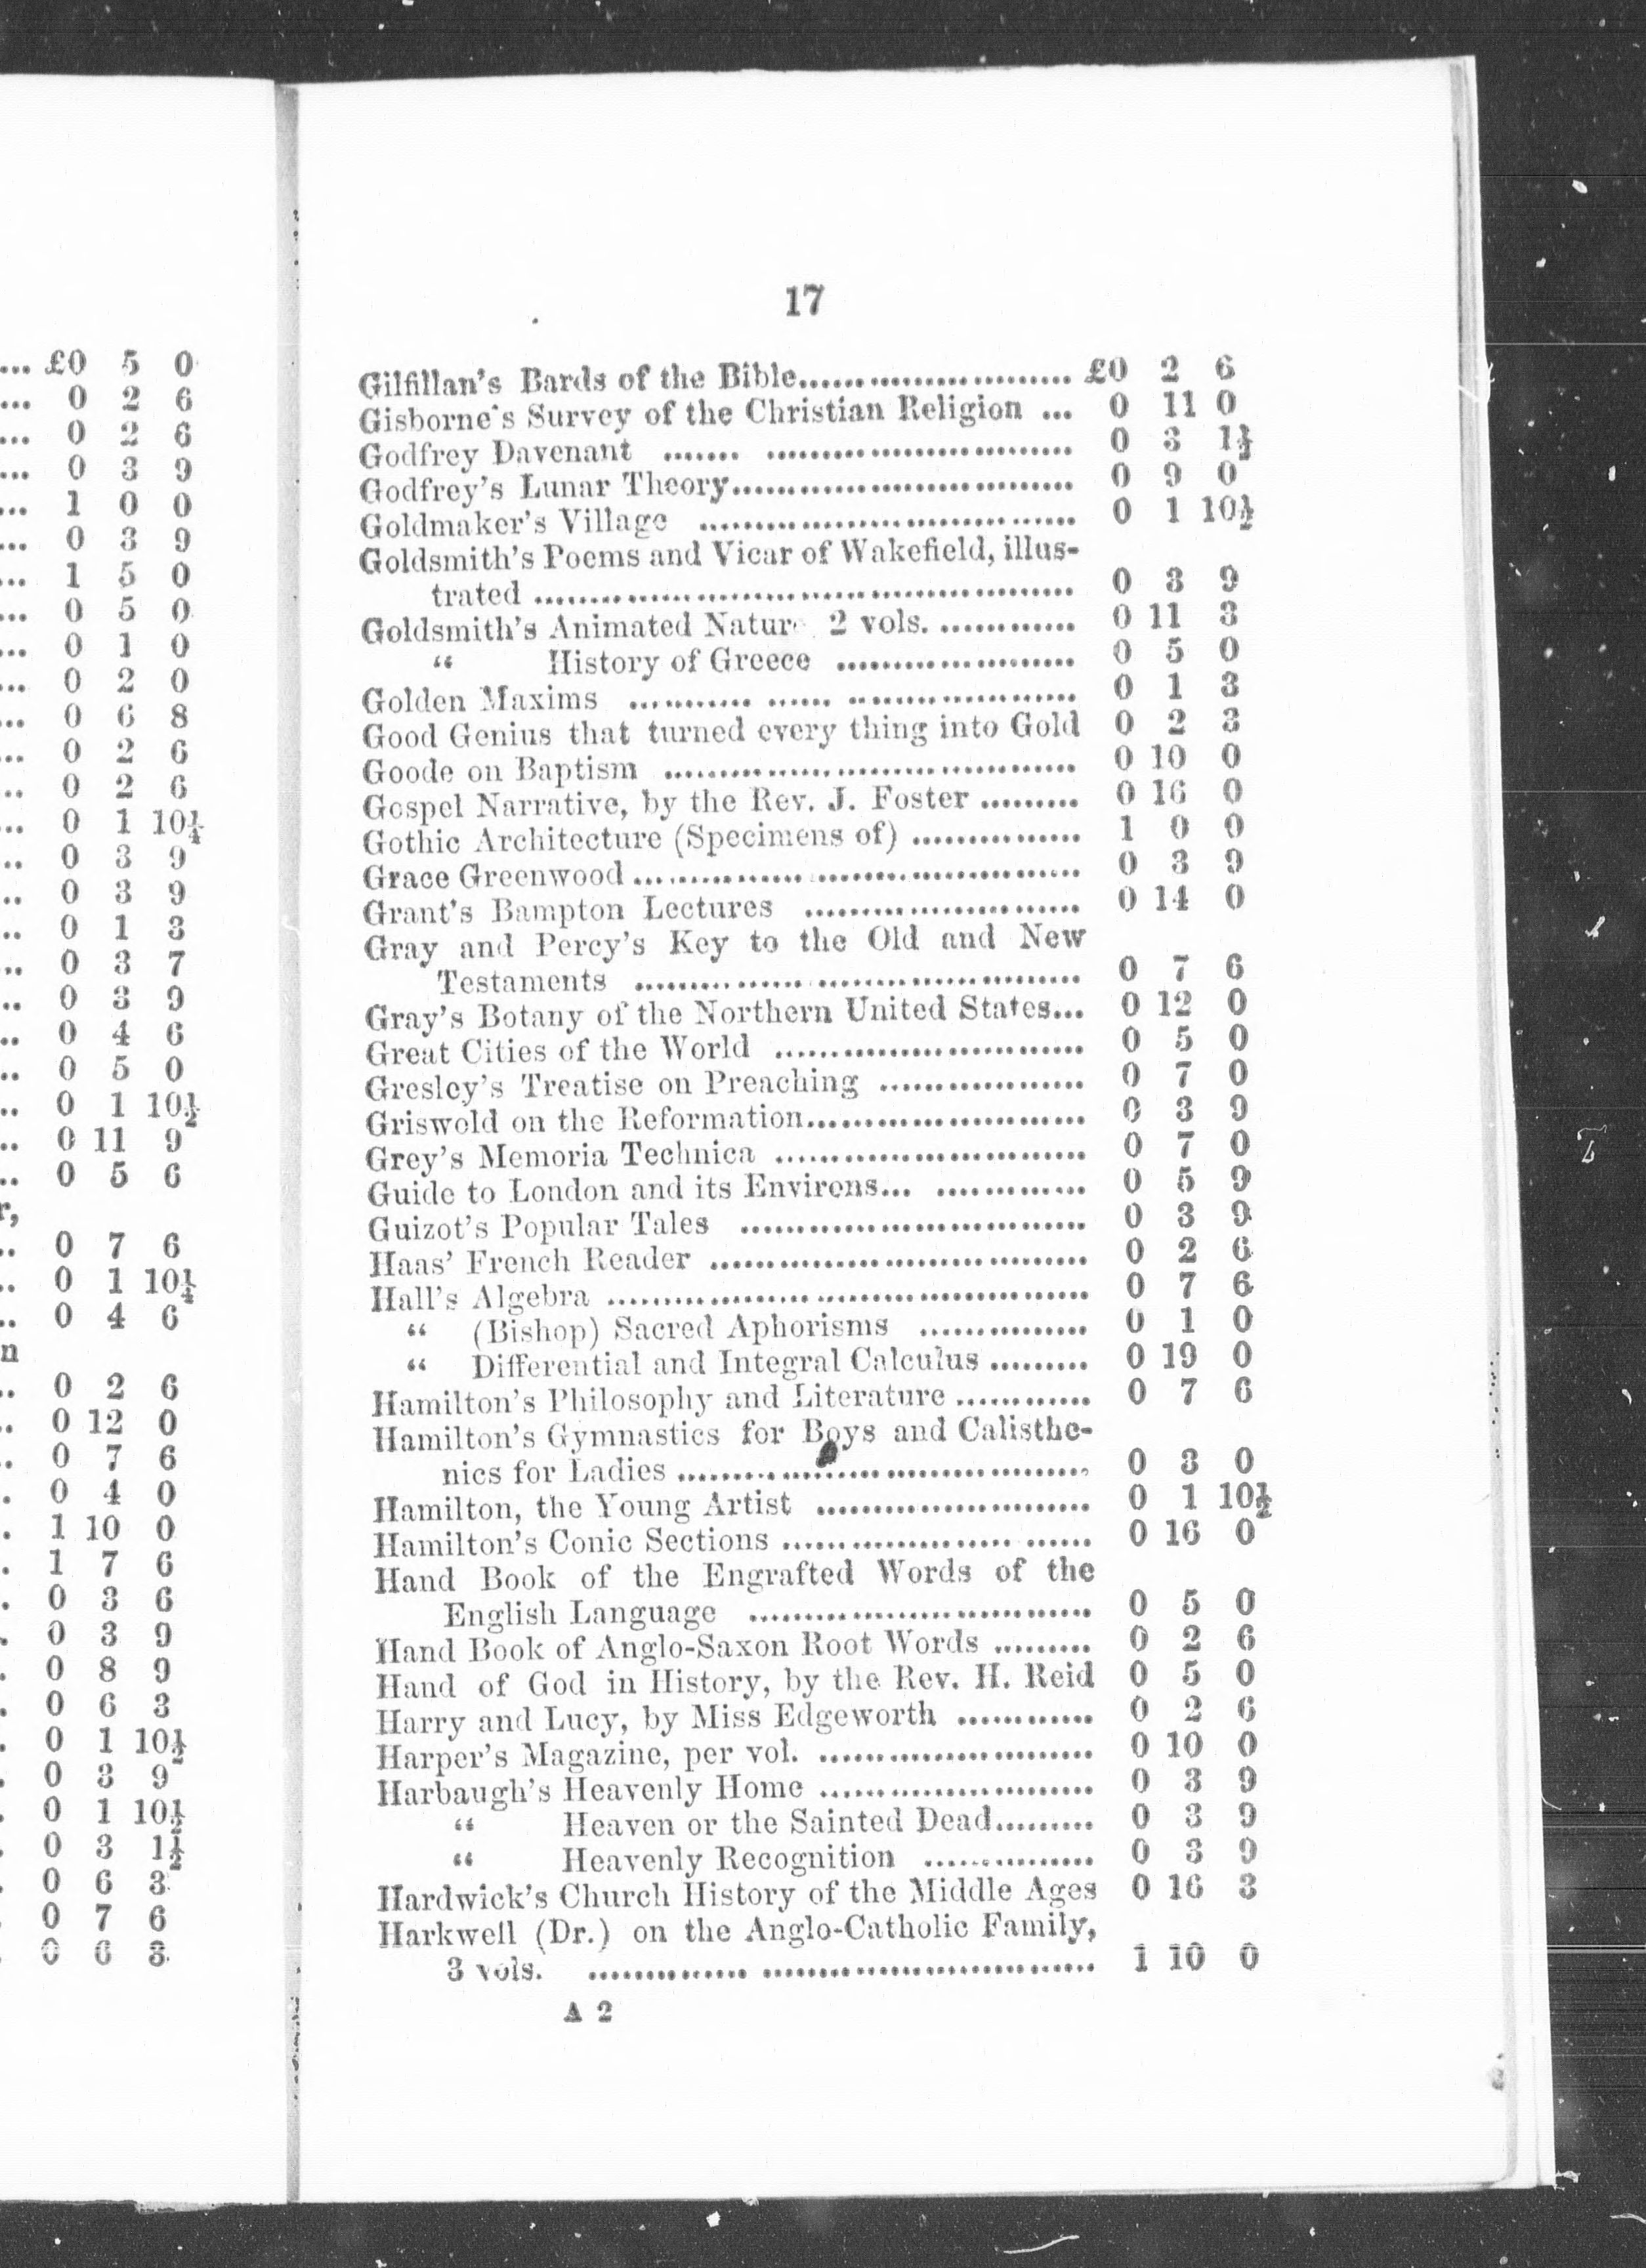 ... £0 5 0
... 0 2 6
... 0 2 6
... 0 3 9
... 1 0 0
... 0 3 9
... 1 5 0
... 0 5 0
... 0 1 0
... 0 2 0
... 0 6 8
... 0 2 6
.. 0 2 6
... 0 1 10½
.. 0 3 9
.. 0 3 9
.. 0 1 3
.. 0 3 7
.. 0 3 9
.. 0 4 6
.. 0 5 0
.. 0 1 10½
.. 0 11 9
.. 0 5 6
r,
.. 0 7 6
.. 0 1 10½
.. 0 4 6
n
.. 0 2 6
.. 0 12 0
. 0 7 6
. 0 4 0
. 1 10 0
. 1 7 6
. 0 3 6
. 0 3 9
. 0 8 9
. 0 6 3
. 0 1 10½
. 0 3 9
. 0 1 10½
. 0 3 1½
. 0 6 3
. 0 7 6
. 0 6 3
17
Gilfillan's Bards of the Bible........................ £0 2 6
Gisborne's Survey of the Christian Religion ... 0 11 0
Godfrey Davenant ....... ........................... 0 3 1½
Godfrey's Lunar Theory.............................. 0 9 0
Goldmaker's Village ................................. 0 1 10½
Goldsmith's Poems and Vicar of Wakefield, illus-
trated ................................................ 0 3 9
Goldsmith's Animated Natur 2 vols. ............ 0 11 3
“ History of Greece ..................... 0 5 0
Golden Maxims ........... ...... .................... 0 1 3
Good Genius that turned every thing into Gold 0 2 3
Goode on Baptism ..................................... 0 10 0
Gospel Narrative, by the Rev. J. Foster ......... 0 16 0
Gothic Architecture (Specimens of) ............... 1 0 0
Grace Greenwood ....................................... 0 3 9
Grant's Bampton Lectures ......................... 0 14 0
Gray and Percy's Key to the Old and New
Testaments ........................................ 0 7 6
Gray's Botany of the Northern United States... 0 12 0
Great Cities of the World ........................... 0 5 0
Gresley's Treatise on Preaching .................. 0 7 0
Griswold on the Reformation........................ 0 3 9
Grey's Memoria Technica ........................... 0 7 0
Guide to London and its Environs... ............. 0 5 9
Guizot's Popular Tales .............................. 0 3 9
Haas' French Reader ................................. 0 2 6
Hall's Algebra .......................................... 0 7 6
“ (Bishop) Sacred Aphorisms ............... 0 1 0
“ Differential and Integral Calculus ......... 0 19 0
Hamilton's Philosophy and Literature ............ 0 7 6
Hamilton's Gymnastics for Boys and Calisthe-
nics for Ladies ..................................... 0 3 0
Hamilton, the Young Artist ........................ 0 1 10½
Hamilton's Conic Sections .................... ...... 0 16 0
Hand Book of the Engrafted Words of the
English Language .............................. 0 5 0
Hand Book of Anglo-Saxon Root Words ......... 0 2 6
Hand of God in History, by the Rev. H. Reid 0 5 0
Harry and Lucy, by Miss Edgeworth ............ 0 2 6
Harper's Magazine, per vol. ........................ 0 10 0
Harbaugh's Heavenly Home ........................ 0 3 9
“ Heaven or the Sainted Dead......... 0 3 9
“ Heavenly Recognition ............... 0 3 9
Hardwick's Church History of the Middle Ages 0 16 3
Harkwell (Dr.) on the Anglo-Catholic Family,
3 vols. .............. .............................. 1 10 0
A 2